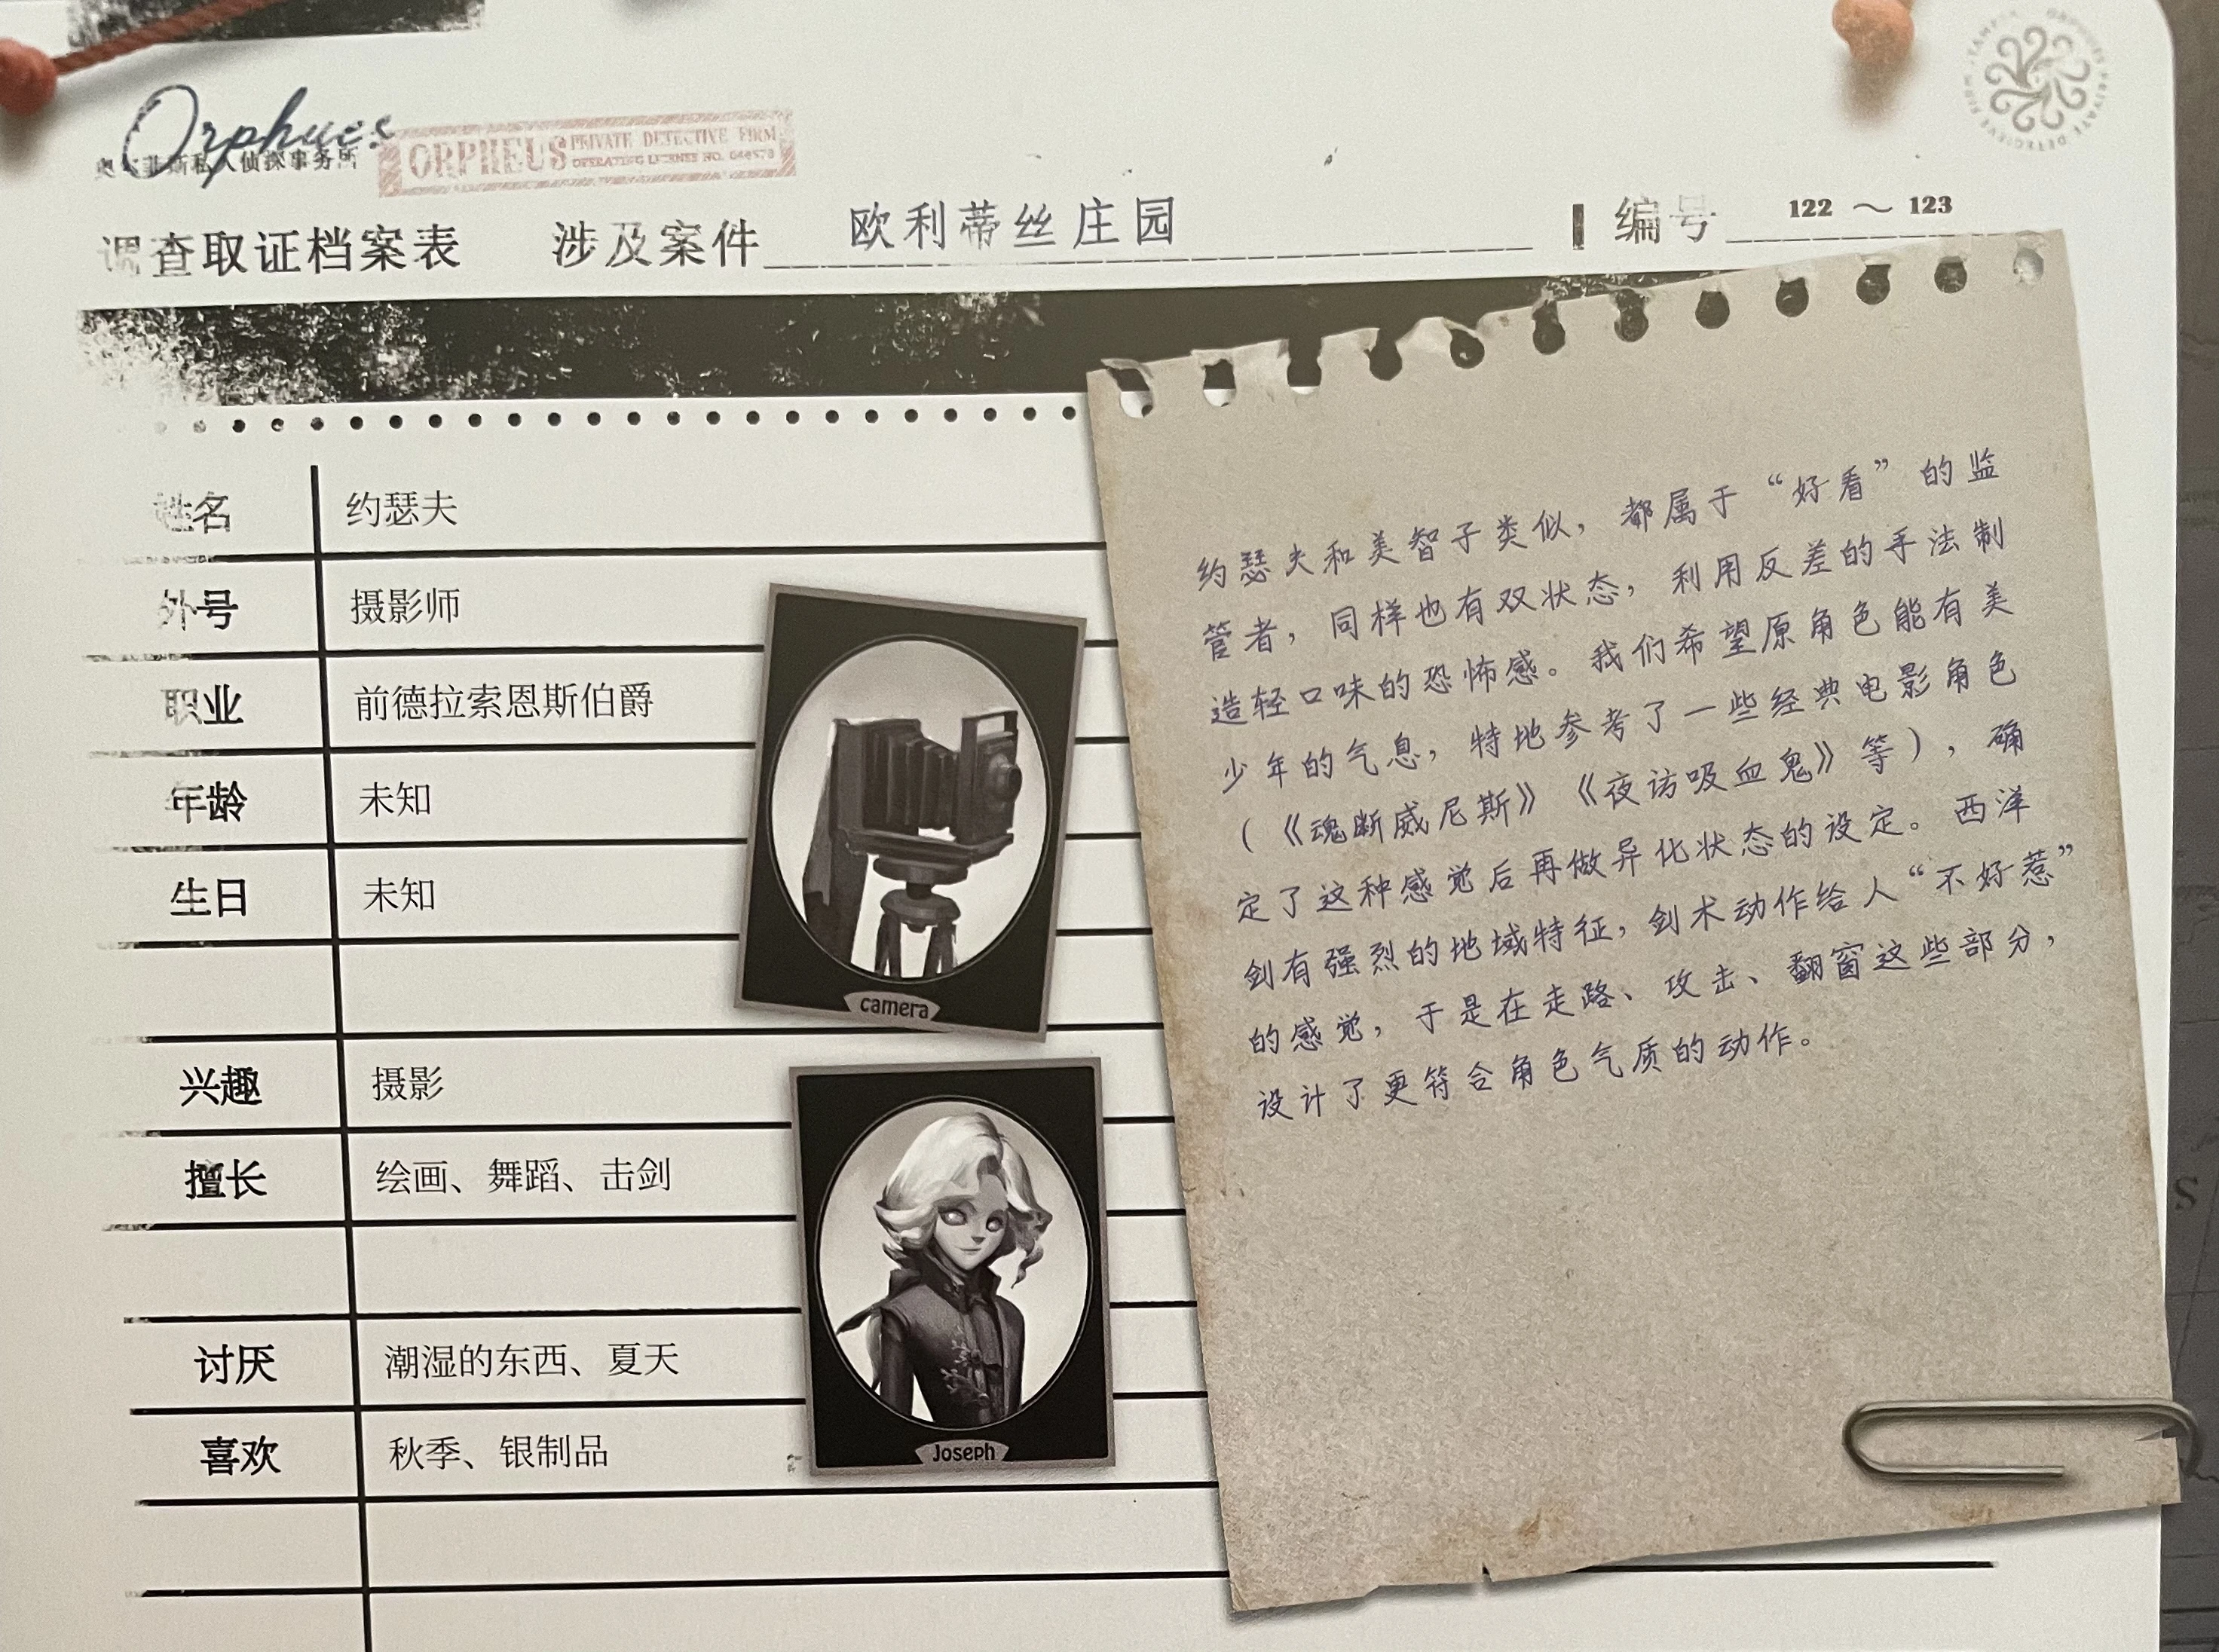 Orpheus
奥尔菲斯私人侦探事务所
ORPHEUS PRIVATE DETECTIVE FIRM
OPERATING LICENSE NO.
调查取证档案表 涉及案件 欧利蒂丝庄园 编号 122～123
姓名 约瑟夫
外号 摄影师
职业 前德拉索恩斯伯爵
年龄 未知
生日 未知
兴趣 摄影
擅长 绘画、舞蹈、击剑
讨厌 潮湿的东西、夏天
喜欢 秋季、银制品
camera
Joseph
约瑟夫和美智子类似，都属于“好看”的监
管者，同样也有双状态，利用反差的手法制
造轻口味的恐怖感。我们希望原角色能有美
少年的气息，特地参考了一些经典电影角色
（《魂断威尼斯》《夜访吸血鬼》等），确
定了这种感觉后再做异化状态的设定。西洋
剑有强烈的地域特征，剑术动作给人“不好惹”
的感觉，于是在走路、攻击、翻窗这些部分，
设计了更符合角色气质的动作。
S